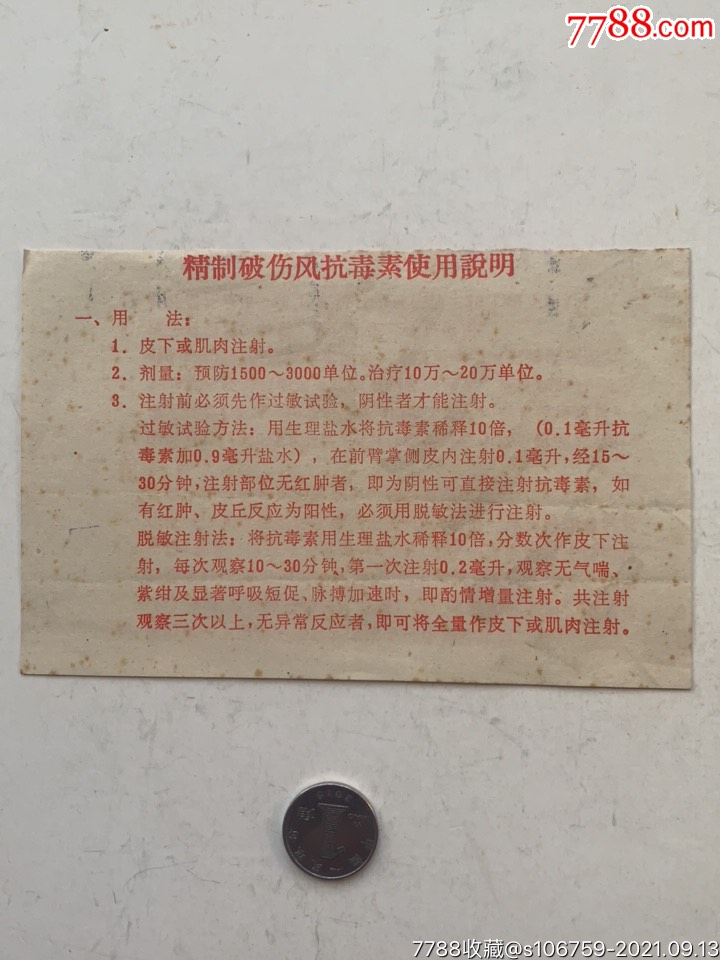 7788.com
精制破伤风抗毒素使用説明
一、用　　法：
1．皮下或肌肉注射。
2．剂量：预防1500～3000单位。治疗10万～20万单位。
3．注射前必须先作过敏试验，阴性者才能注射。
过敏试验方法：用生理盐水将抗毒素稀释10倍，（0.1毫升抗
毒素加0.9毫升盐水），在前臂掌侧皮内注射0.1毫升，经15～
30分钟，注射部位无红肿者，即为阴性可直接注射抗毒素，如
有红肿、皮丘反应为阳性，必须用脱敏法进行注射。
脱敏注射法：将抗毒素用生理盐水稀释10倍，分数次作皮下注
射，每次观察10～30分钟，第一次注射0.2毫升，观察无气喘、
紫绀及显著呼吸短促、脉搏加速时，即酌情增量注射。共注射
观察三次以上，无异常反应者，即可将全量作皮下或肌肉注射。
7788收藏@s106759-2021.09.13